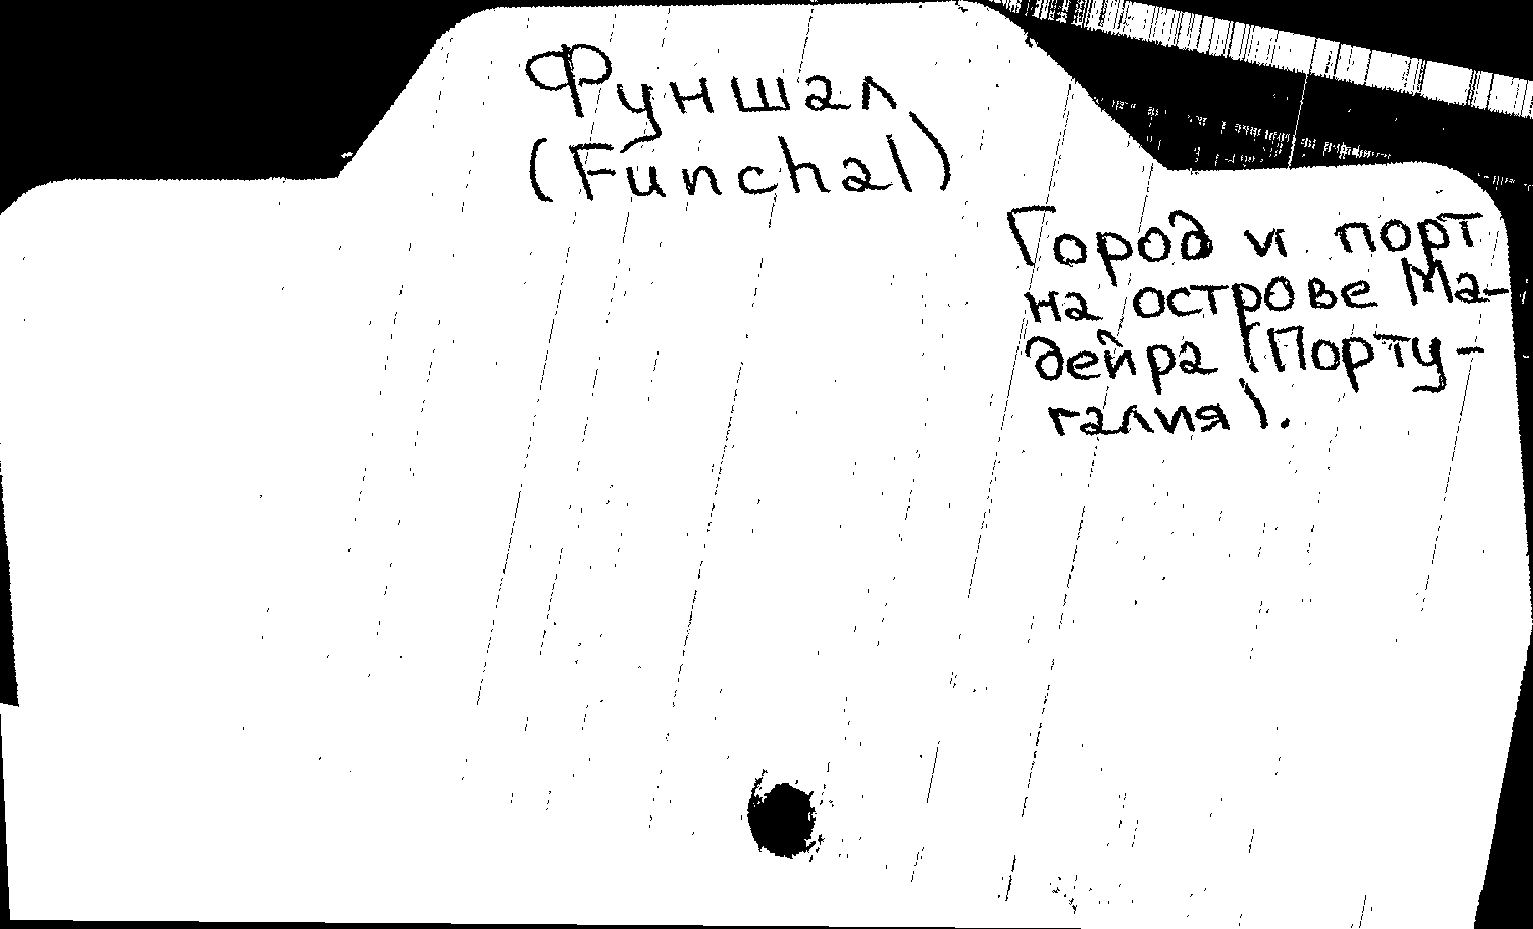 Фуншал
(Funchal)
Город и порт
на острове Ма-
дейра (Порту-
галия).